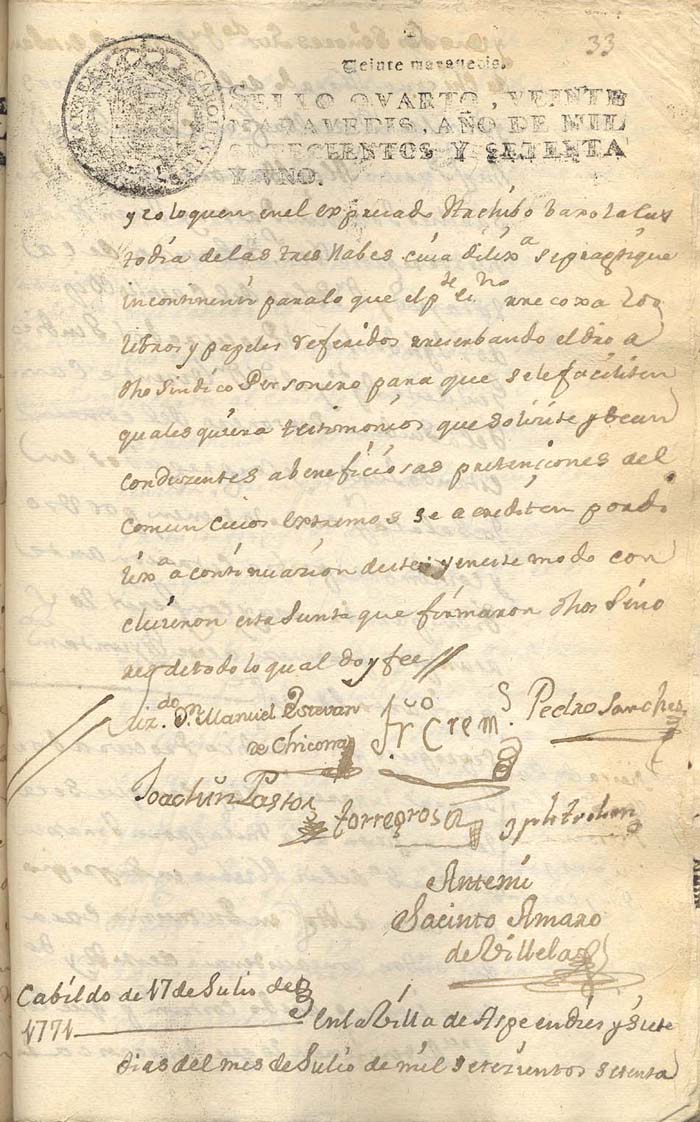 33
Veinte maravedis.
SELLO QVARTO, VEINTE
MARAVEDIS, AÑO DE MIL
SETECIENTOS Y SETENTA
Y UNO.
y coloquen en el expreciado Archibo baxo la cus
todia de las tres llabes cuia dilixª se practique
incontinenti para lo que el pte. Sno. rrecoxa los
libros y papeles referidos rreserbando el dro a
dho Sindico Personero para que se le faciliten
quales quiera testimonios que solicite y sean
conduzentes a beneficio las pretenciones del
comun cuios extremos se acrediten por di
lixª a continuazion deste y en este modo con
cluieron esta Junta que firmaron dhos Seño
res de todo lo qual doy fee
Liz.do Dn Manuel Estevan
de Chicorra
Frco Crem.s
Pedro Sanches
Joachin Pastor
Torregrosa
Antemi
Jacinto Amaro
de Villela
Cabildo de 17 de Julio de
1771
En la Villa de Aspe en dies y siete
dias del mes de Julio de mil setezientos setenta